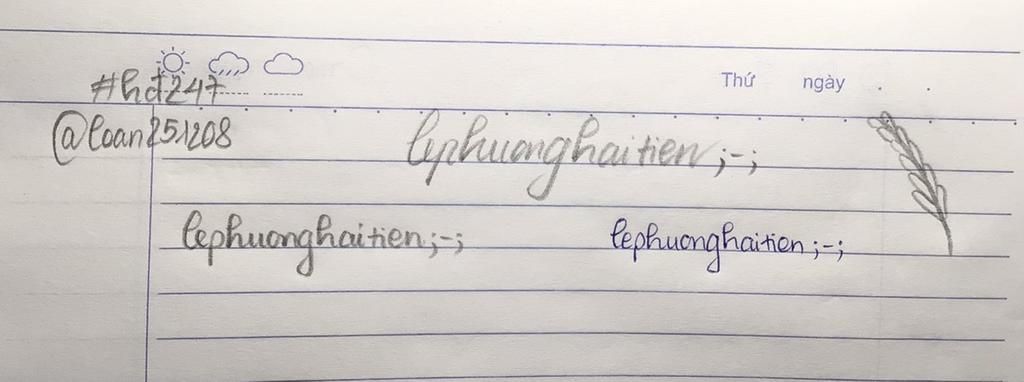 Thứ ngày . .
#hđ247
@loan251208
lephuonghaitien ;-;
lephuonghaitien ;-; lephuonghaitien ;-;